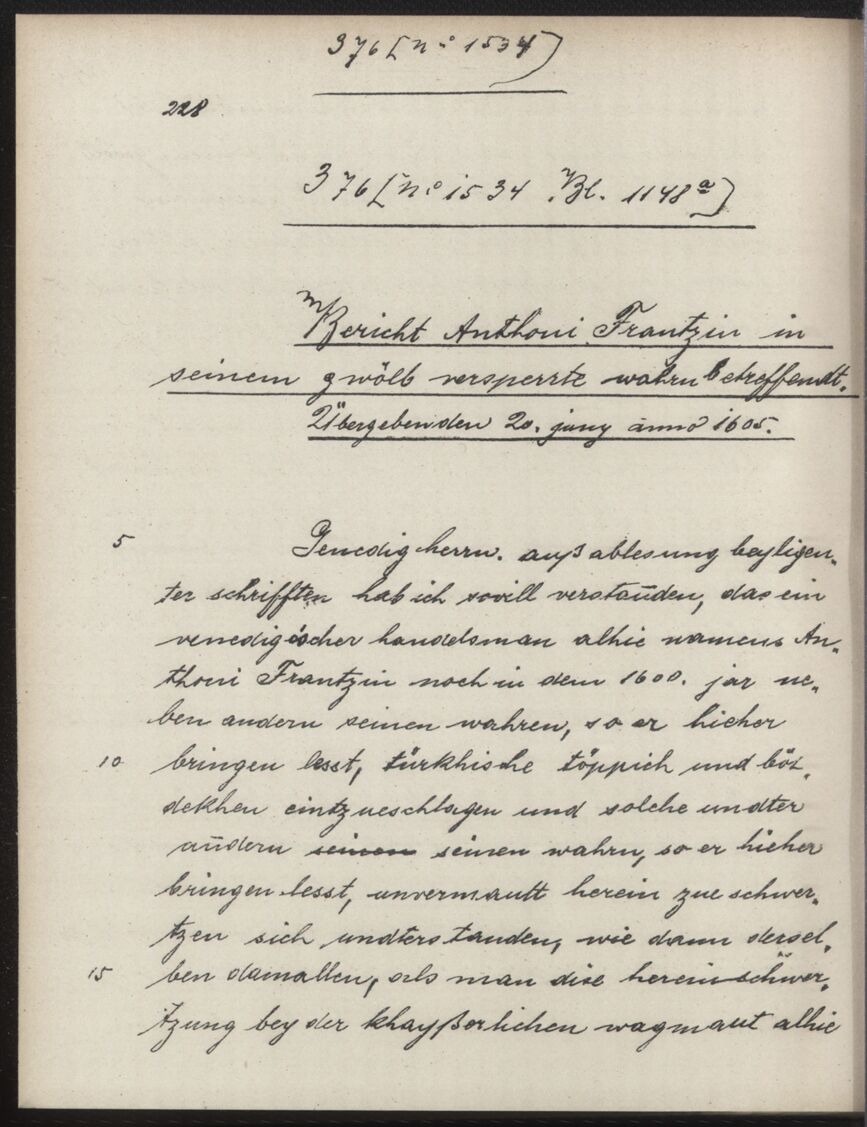 376 [Nº 1534]
228
376 [Nº 1534 Bl. 1148ª]
Bericht Anthoni Frantzin in
seinem gwölb versperrte wahrn betreffendt.
Übergeben den 20. juny anno 1605.
5 Genedig herrn. auß ablesung beyligen„
ter schrifften hab ich sovill verstanden, das ein
venedigischer handelsman alhie namens An„
thoni Frantzin noch in dem 1600. jar ne„
ben andern seinen wahren, so er hieher
10 bringen lesst, türkhische töppich und böz„
dekhen eintzueschlagen und solche undter
andern seinen seinen wahrn, so er hieher
bringen lesst, unvermautt herein zue schwer„
tzen sich undterstanden, wie dann dersel„
15 ben damallen, als man dise hereinschwer„
tzung bey der khayßerlichen wagmaut alhie